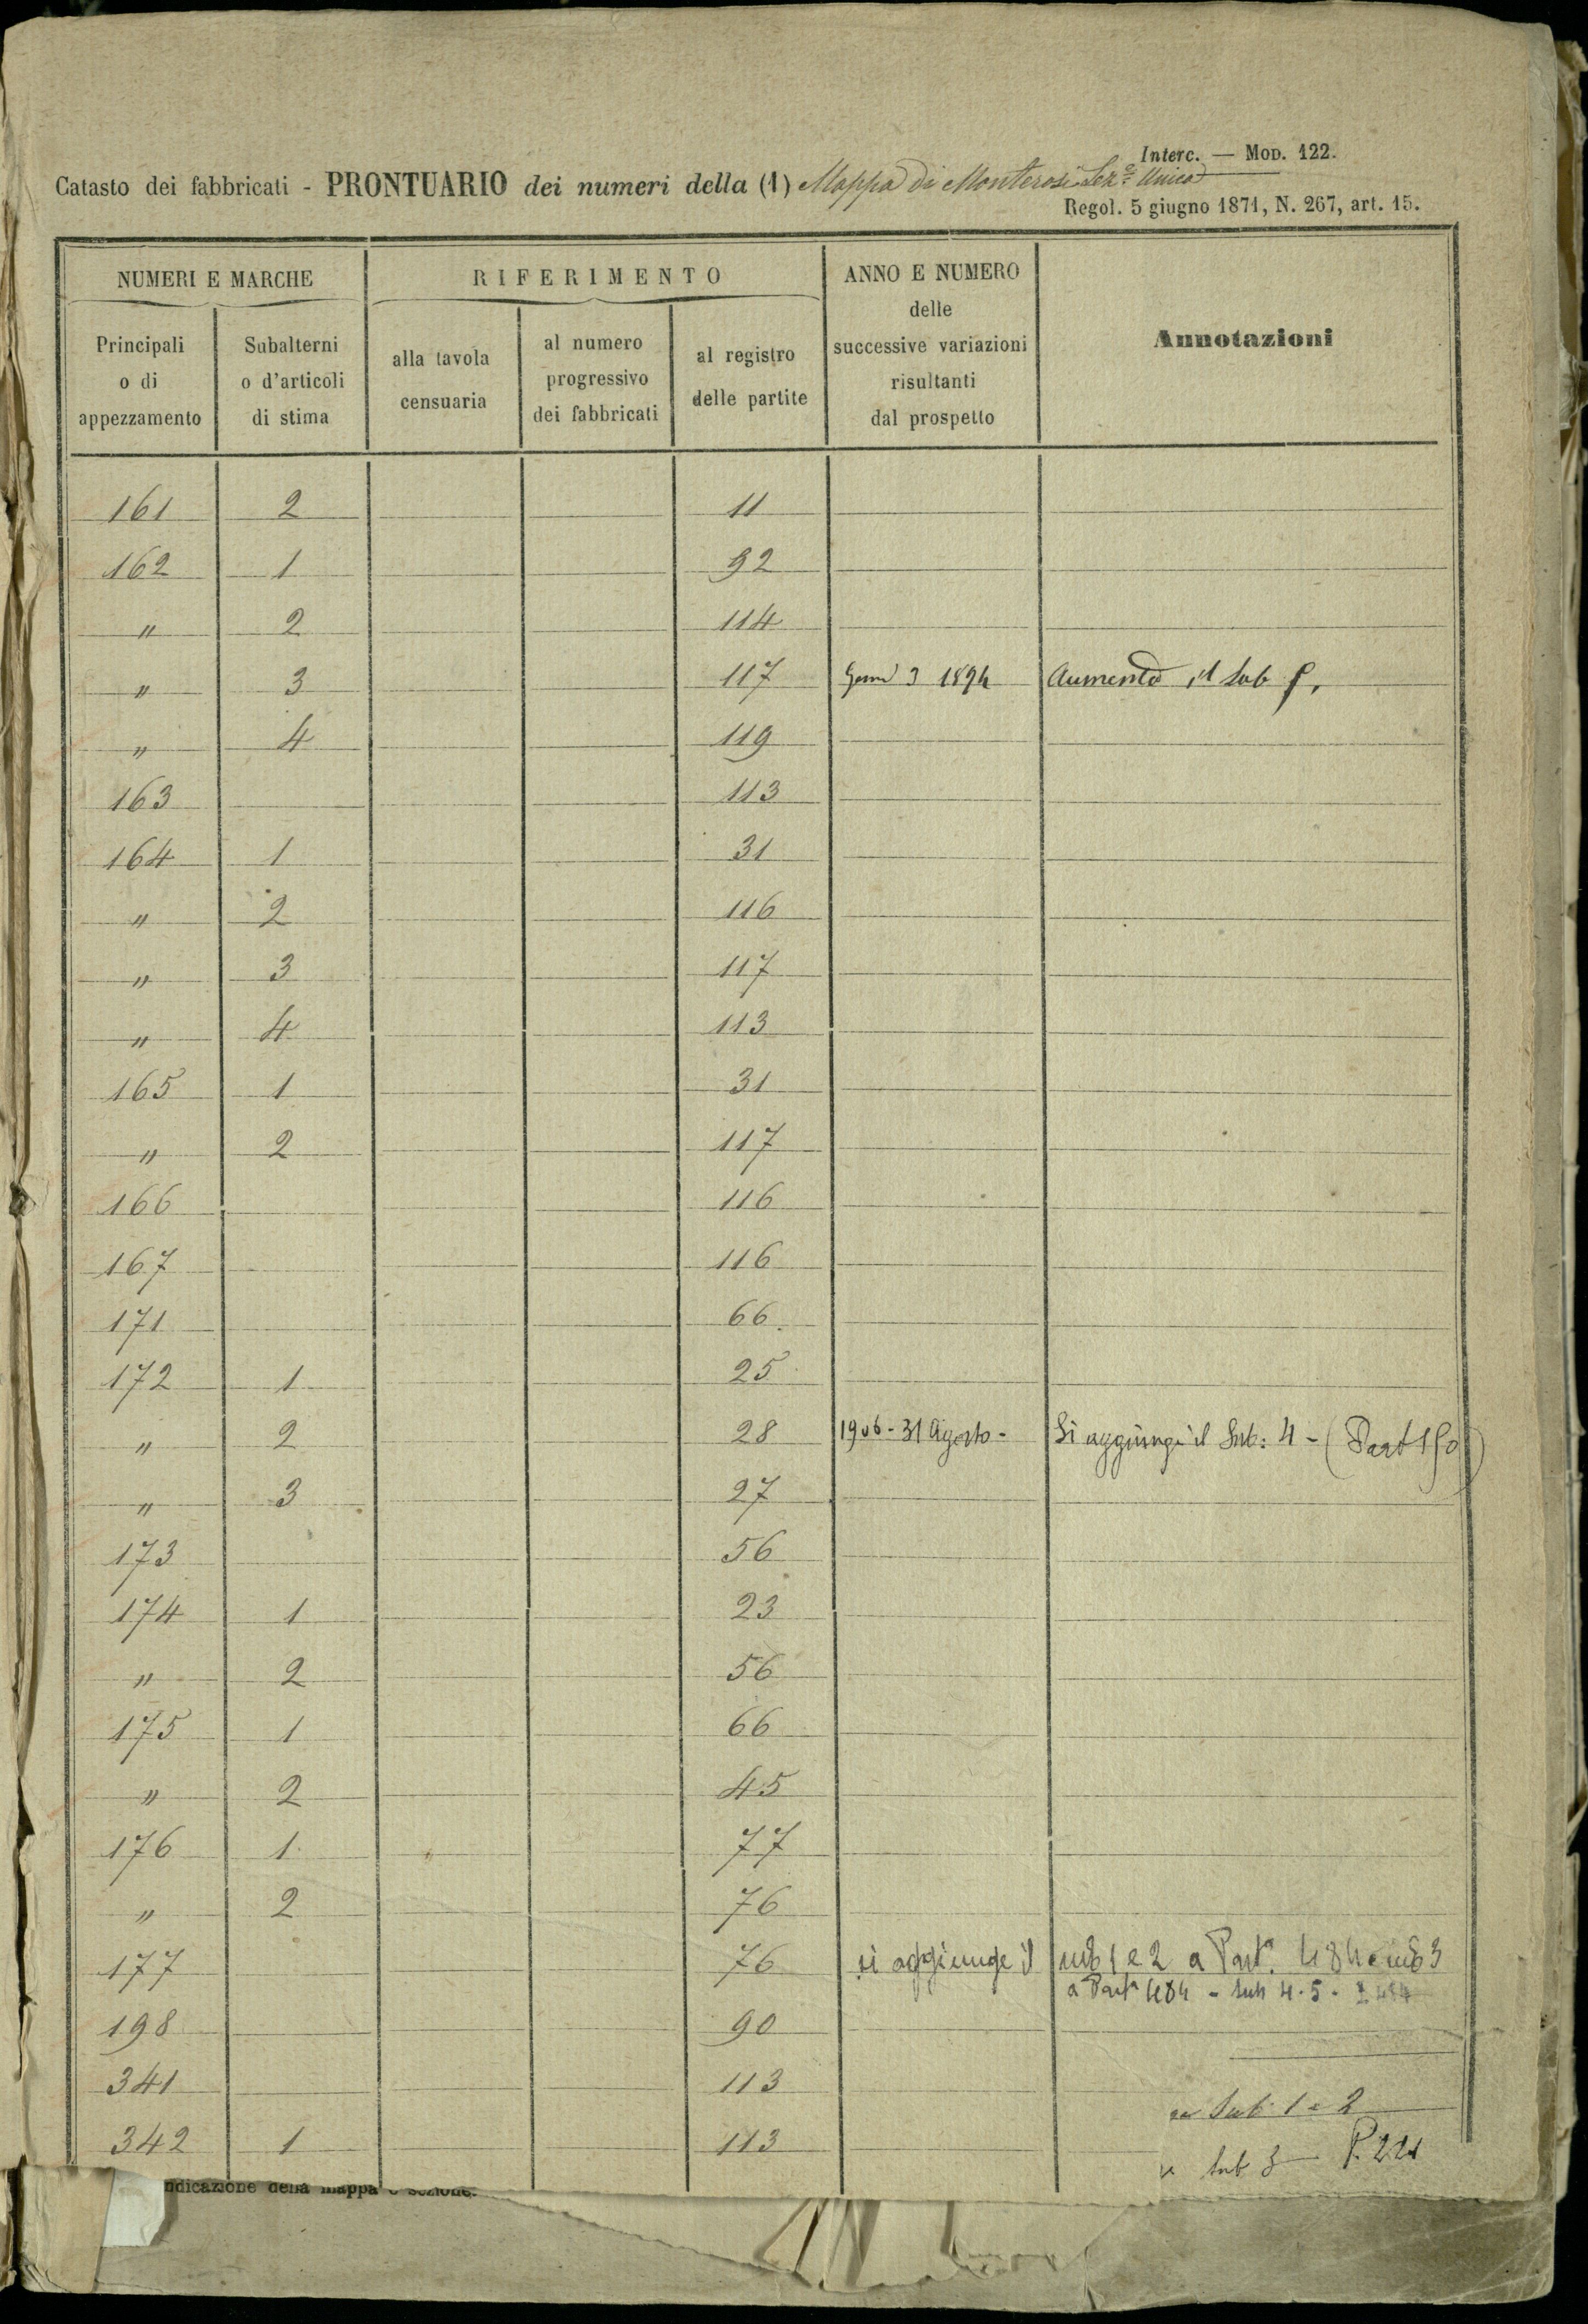 Interc. — MOD. 122.
Catasto dei fabbricati - PRONTUARIO dei numeri della (1) Mappa di Monterosi Sez.e Unica
Regol. 5 giugno 1871, N. 267, art. 15.
NUMERI E MARCHE RIFERIMENTO ANNO E NUMERO delle successive variazioni risultanti dal prospetto Annotazioni
Principali o di appezzamento Subalterni o d'articoli di stima alla tavola censuaria al numero progressivo dei fabbricati al registro delle partite
161 2 11
162 1 92
" 2 114
" 3 117 3 1894 Aumento il Sub
" 4 119
163 113
164 1 31
" 2 116
" 3 117
" 4 113
165 1 31
" 2 117
166 116
167 116
171 66
172 1 25
" 2 28 1906 - 31 Agosto - Si aggiunge il Sub: 4 - (Part 150)
" 3 27
173 56
174 1 23
" 2 56
175 1 66
" 2 45
176 1 77
" 2 76
177 76 si aggiunge il sub 1 e 2 a Part.a 484 e sub 3
a Part.a 484 - sub 4.5 -
198 90
341 113
342 1 113 Sub 1 e 2
sub 3 P. 221
ndicazione della mappa o sezione.